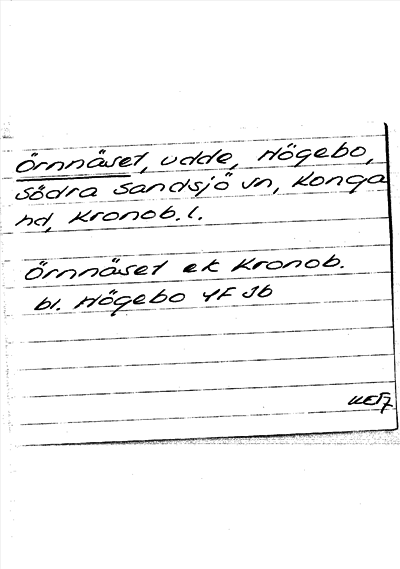 Örnnäset, udde, Högebo,
Södra Sandsjö sn, Konga
hd, Kronob. l.
Örnnäset ek Kronob.
bl. Högebo 4F Jb